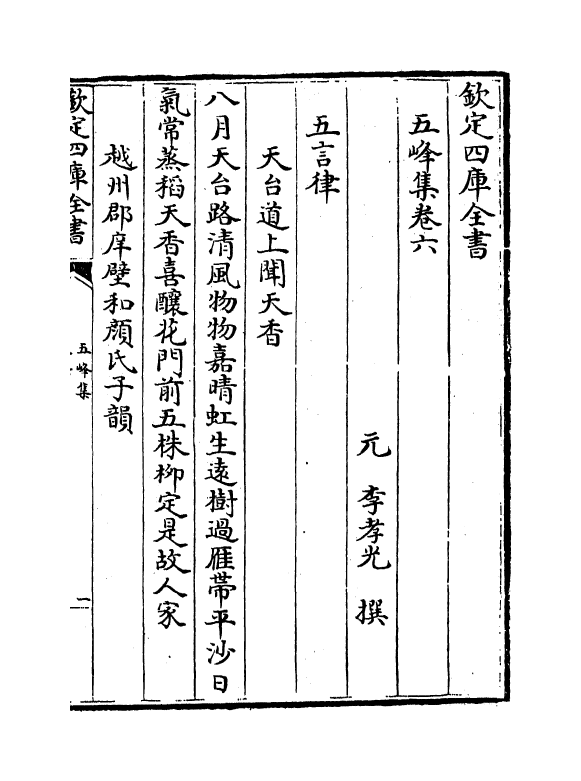 欽定四庫全書
五峰集卷六
元　李孝光　撰
五言律
天台道上聞天香
八月天台路清風物物嘉晴虹生遠樹過雁帶平沙日
氣常蒸稻天香喜釀花門前五株柳定是故人家
越州郡庠壁和顔氏子韻
欽定四庫全書
五峰集
一